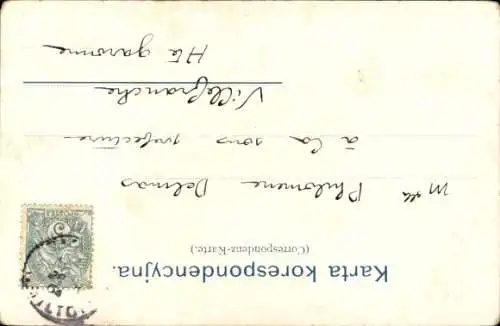 Karta korespondencyjna.
(Correspondenz-Karte.)
Mlle Philomène Delmas
à la sous préfecture
Villefranche
Hte garonne
5
29
04